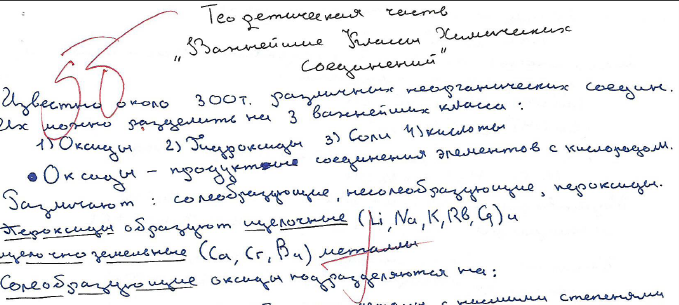 Теоретическая часть
„Важнейшие Классы Химических
Соединений"
55
Известно около 300т. различных неорганических соедин.
Их можно разделить на 3 важнейших класса :
1) Оксиды 2) Гидроксиды 3) Соли 4) кислоты
• Оксиды – продукты соединения элементов с кислородом.
Различают : солеобразующие, несолеобразующие, пероксиды.
Пероксиды образуют щелочные (Li, Na, K, Rb, Cs) и
щелочноземельные (Ca, Sr, Ba) металлы
Солеобразующие оксиды подразделяются на:
с низшими степенями